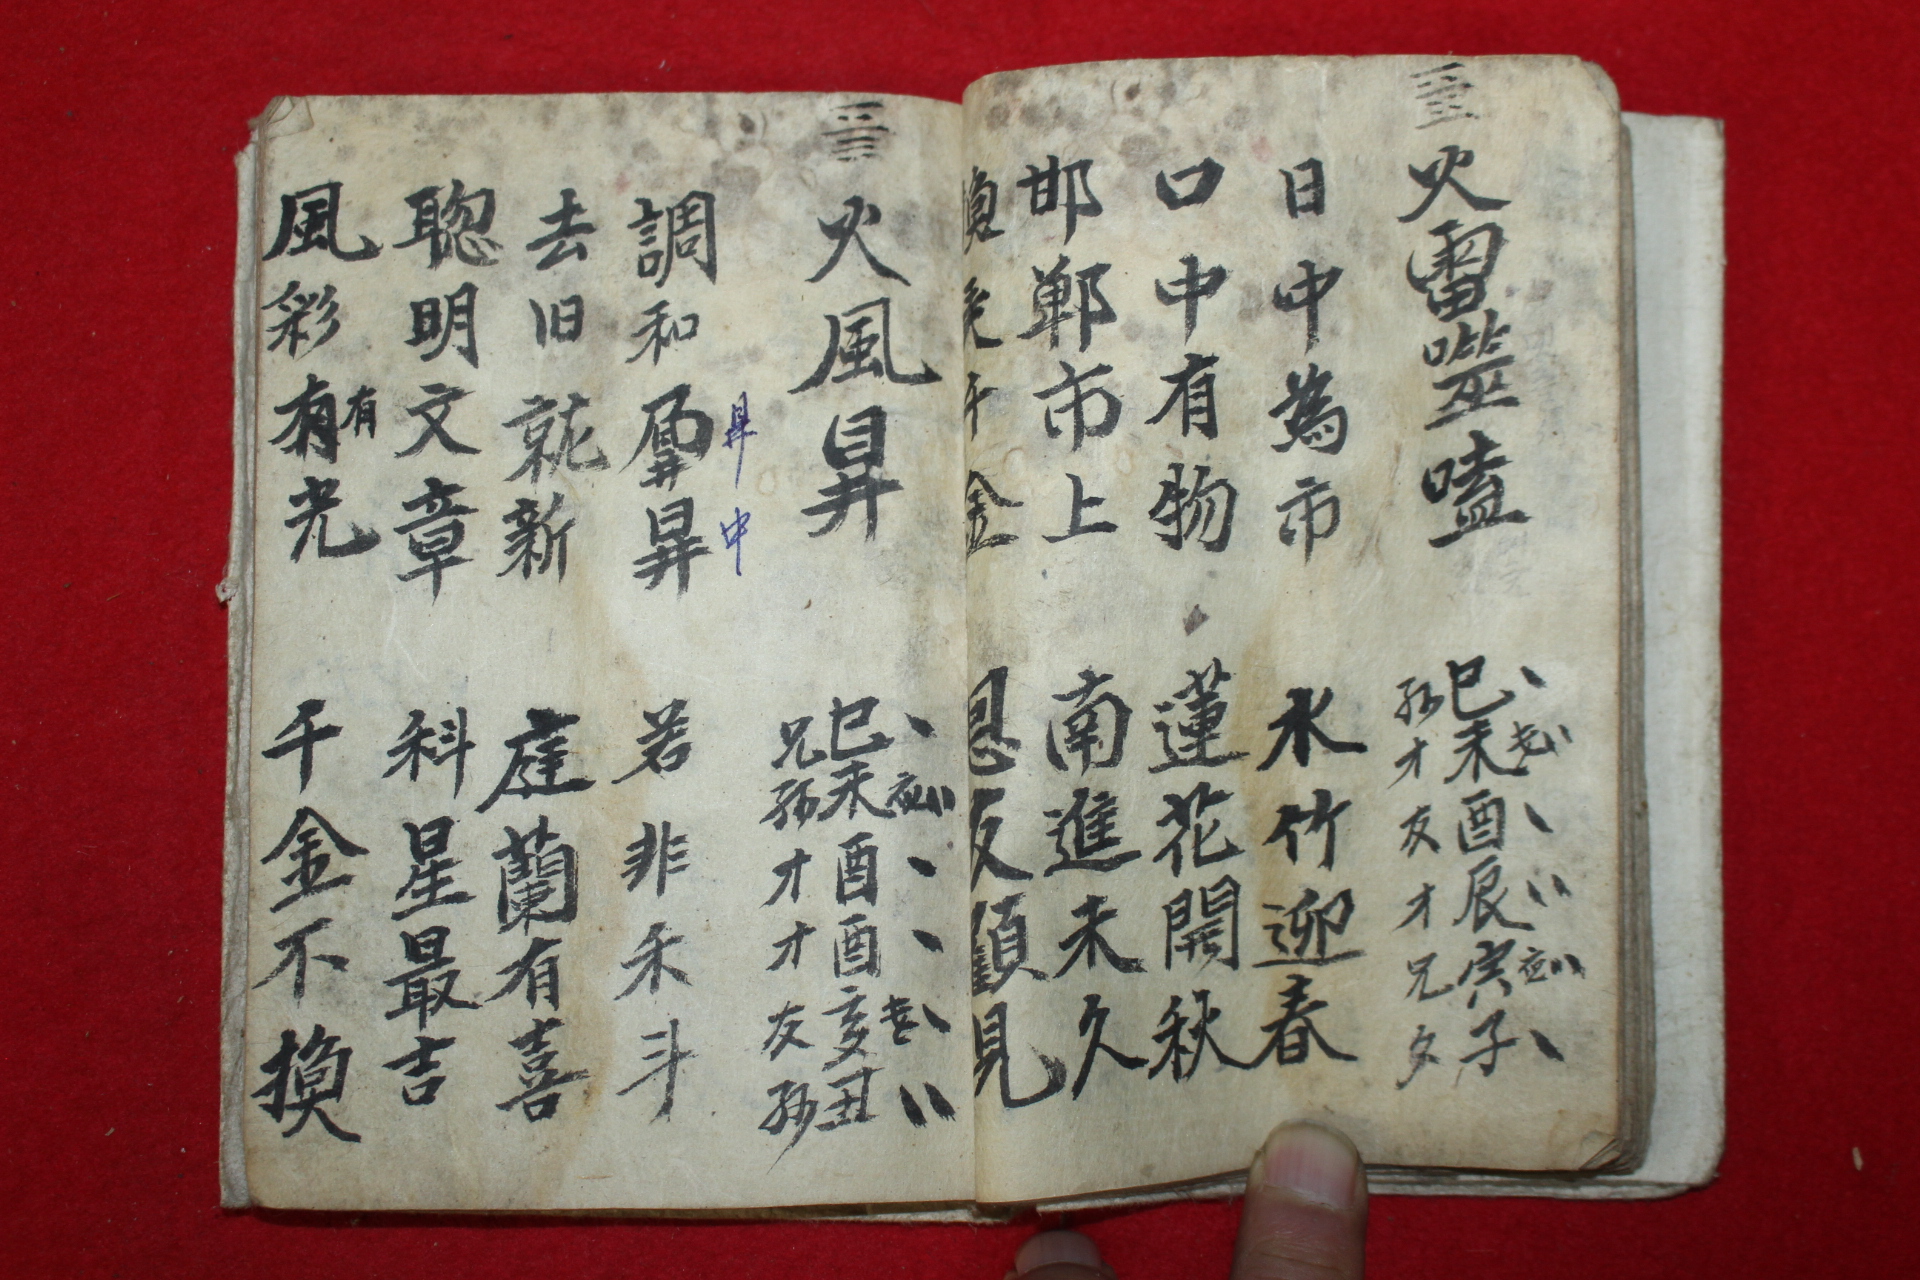 火雷噬嗑
巳未酉辰寅子
孫才友才兄夕
日中為市 水竹迎春
口中有物 蓮花開秋
邯鄲市上 南進未久
千金 恩反顧見
火風昇
巳未酉酉亥丑
兄孫才才友孫
昇中
調和 昇 若非禾斗
去旧就新 庭蘭有喜
聡明文章 科星最吉
有
風彩有光 千金不換